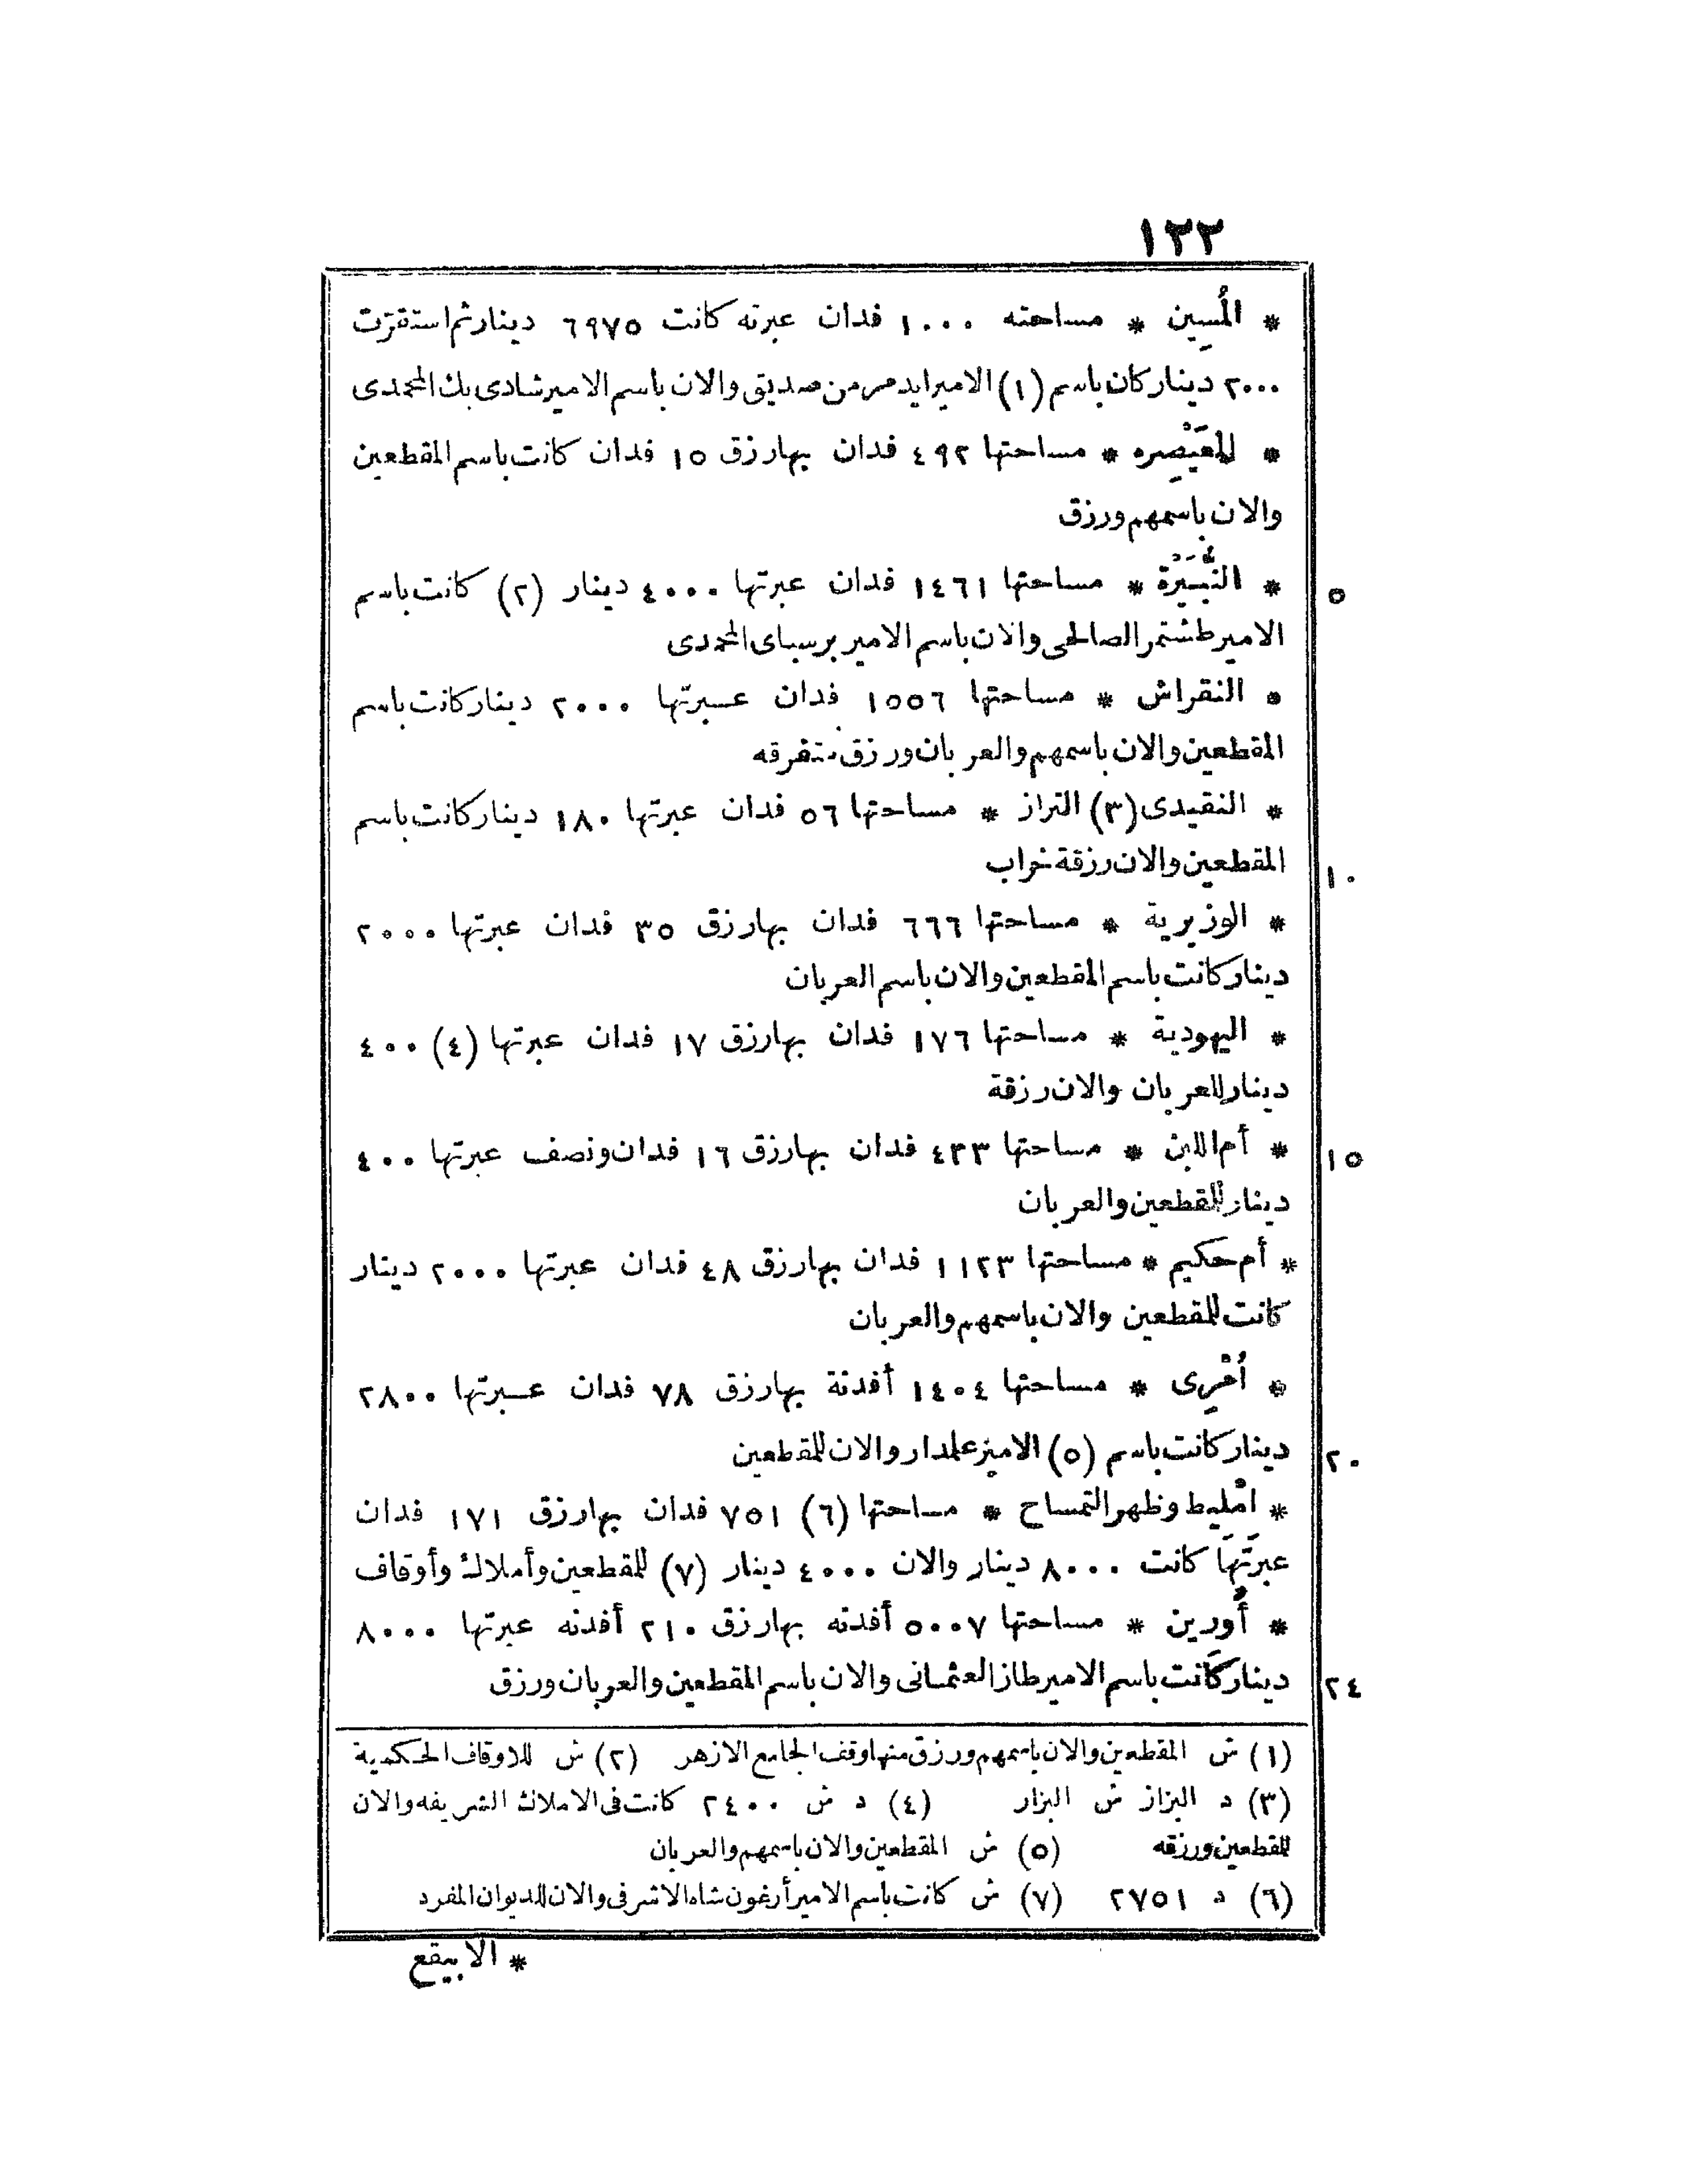 ١٢٢
* المُسِين * مساحته ١٠٠٠ فدان عبرته كانت ٦٩٧٥ دينار ثم استقرّت
٢٠٠٠ دينار كان باسم (١) الامير ايدمر من صديق والان باسم الامير شادى بك المحمدى
* للعَيْصِره * مساحتها ٤٩٢ فدان بها رزق ١٥ فدان كانت باسم المقطعين
والان باسمهم ورزق
* النُّبَيْرَة * مساحتها ١٤٦١ فدان عبرتها ٤٠٠٠ دينار (٢) كانت باسم
٥
الامير طشتمر الصالحى والان باسم الامير برسباى المحمدى
* النقراش * مساحتها ١٥٥٦ فدان عبرتها ٢٠٠٠ دينار كانت باسم
المقطعين والان باسمهم والعربان ورزق متفرقه
* النقيدى (٣) التراز * مساحتها ٥٦ فدان عبرتها ١٨٠ دينار كانت باسم
المقطعين والان رزقة خراب
١٠
* الوزيرية * مساحتها ٦٦٦ فدان بها رزق ٣٥ فدان عبرتها ٢٠٠٠
دينار كانت باسم المقطعين والان باسم العربان
* اليهودية * مساحتها ١٧٦ فدان بها رزق ١٧ فدان عبرتها (٤) ٤٠٠
دينار للعربان والان رزقة
* أم اللبن * مساحتها ٤٣٣ فدان بها رزق ١٦ فدان ونصف عبرتها ٤٠٠
١٥
دينار للمقطعين والعربان
* أم حكيم * مساحتها ١١٢٣ فدان بها رزق ٤٨ فدان عبرتها ٢٠٠٠ دينار
كانت للمقطعين والان باسمهم والعربان
* أُمْرِى * مساحتها ١٤٠٤ أفدنة بها رزق ٧٨ فدان عبرتها ٢٨٠٠
دينار كانت باسم (٥) الامير علمدار والان للمقطعين
٢٠
* امْليط وظهر التمساح * مساحتها (٦) ٧٥١ فدان بها رزق ١٧١ فدان
عبرَتَهَا كانت ٨٠٠٠ دينار والان ٤٠٠٠ دينار (٧) للمقطعين وأملاك وأوقاف
* أُورِين * مساحتها ٥٠٠٧ أفدنه بها رزق ٢١٠ أفدنه عبرتها ٨٠٠٠
دينار كانت باسم الامير طاز العثمانى والان باسم المقطعين والعربان ورزق
٢٤
(١) ش المقطعين والان باسمهم ورزق منها وقف الجامع الازهر (٢) ش للاوقاف الحكمية
(٣) د البزاز ش البزار (٤) د ش ٢٤٠٠ كانت فى الاملاك الشريفه والان
للمقطعين ورزقه (٥) ش المقطعين والان باسمهم والعربان
(٦) د ٢٧٥١ (٧) ش كانت باسم الامير أرغون شاه الاشرفى والان للديوان المفرد
* الابيقع